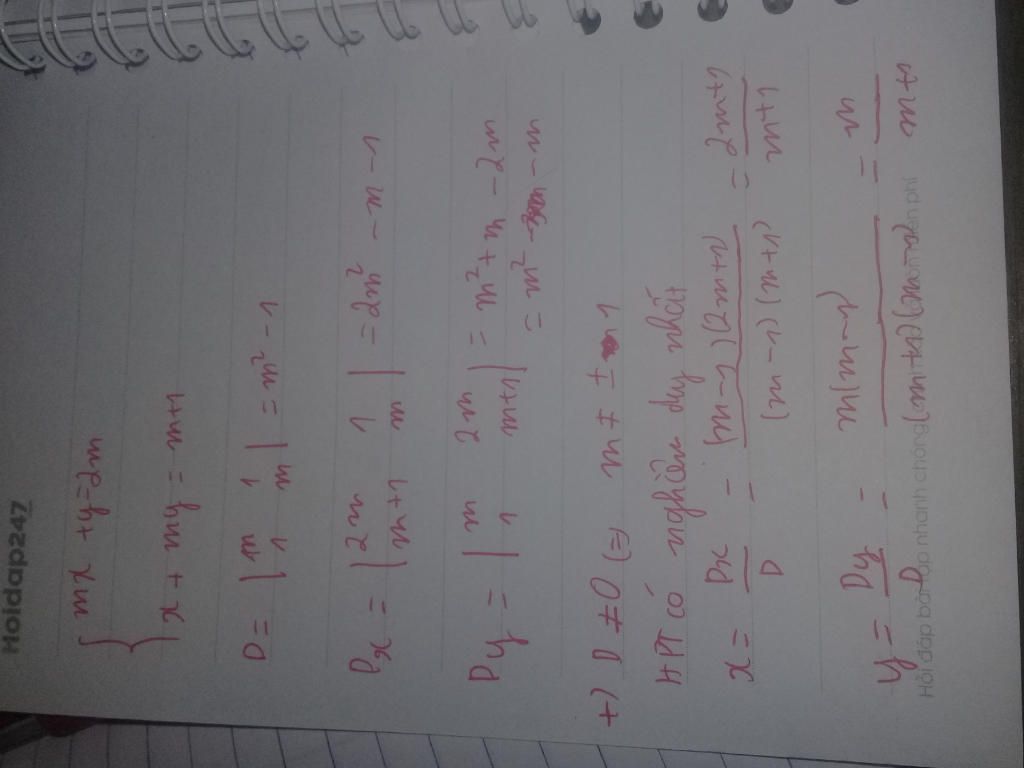 Hoidap247
{ mx + y = 2m
x + my = m+1
D = | m 1
1 m | = m² - 1
Dx = | 2m 1
m+1 m | = 2m² - m - 1
Dy = | m 2m
1 m+1 | = m² + m - 2m
= m² - m
+) D ≠ 0 (=) m ≠ ± 1
HPT có nghiệm duy nhất
x = Dx/D = (m-1)(2m+1)/(m-1)(m+1) = 2m+1/m+1
y = Dy/D = m(m-1)/(m+1)(m-1) = m/m+1
Hỏi đáp bài tập nhanh chóng, miễn phí